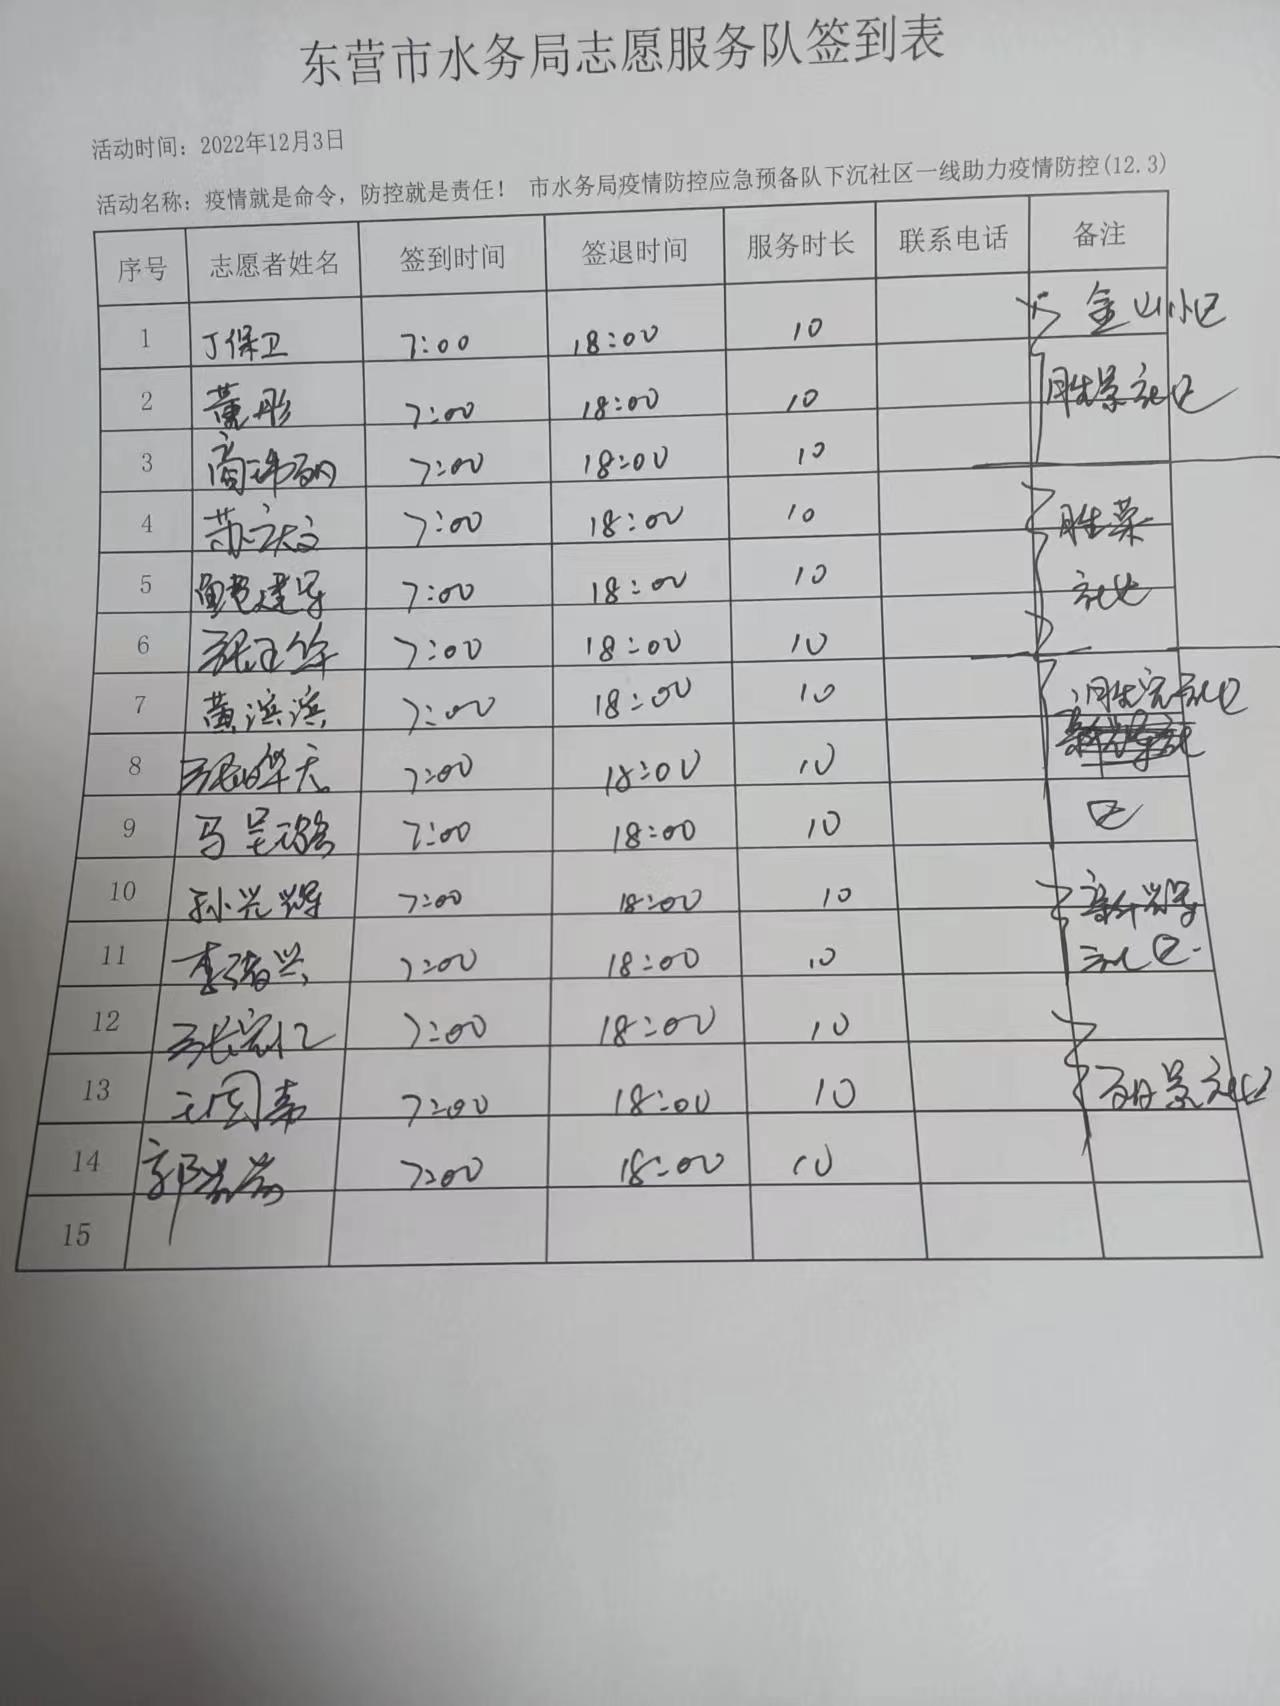 东营市水务局志愿服务队签到表
活动时间：2022年12月3日
活动名称：疫情就是命令，防控就是责任！ 市水务局疫情防控应急预备队下沉社区一线助力疫情防控(12.3)
序号 志愿者姓名 签到时间 签退时间 服务时长 联系电话 备注
1 丁保卫 7:00 18:00 10 金山小区
2 董彤 7:00 18:00 10 胜景社区
3 7:00 18:00 10
4 苏庆文 7:00 18:00 10 胜荣
5 7:00 18:00 10 社区
6 7:00 18:00 10
7 黄滨滨 7:00 18:00 10 社区
8 7:00 18:00 10
9 马 7:00 18:00 10 区
10 孙兴辉 7:00 18:00 10
11 7:00 18:00 10 社区
12 张宏仁 7:00 18:00 10
13 7:00 18:00 10 社区
14 郭 7:00 18:00 10
15